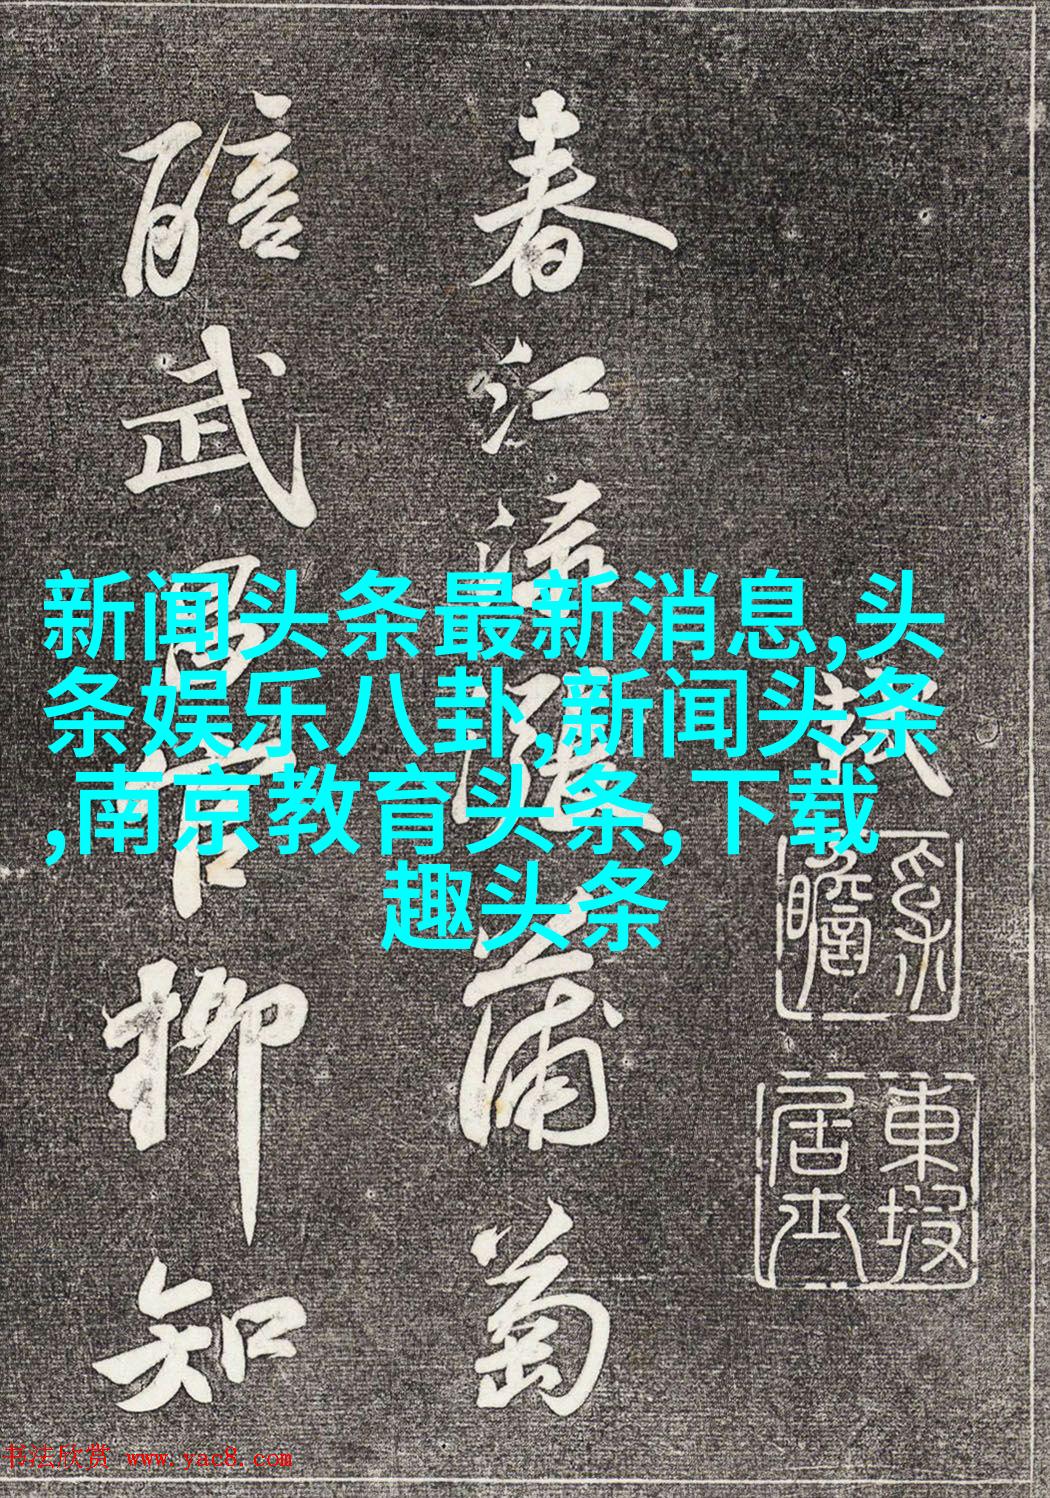 新闻头条最新消息,头
条娱乐八卦,新闻头条
,南京教育头条,下载
趣头条
軾
東坡居士
春江蒲萄
醅武昌官柳知
书法欣赏 www.yac8.com